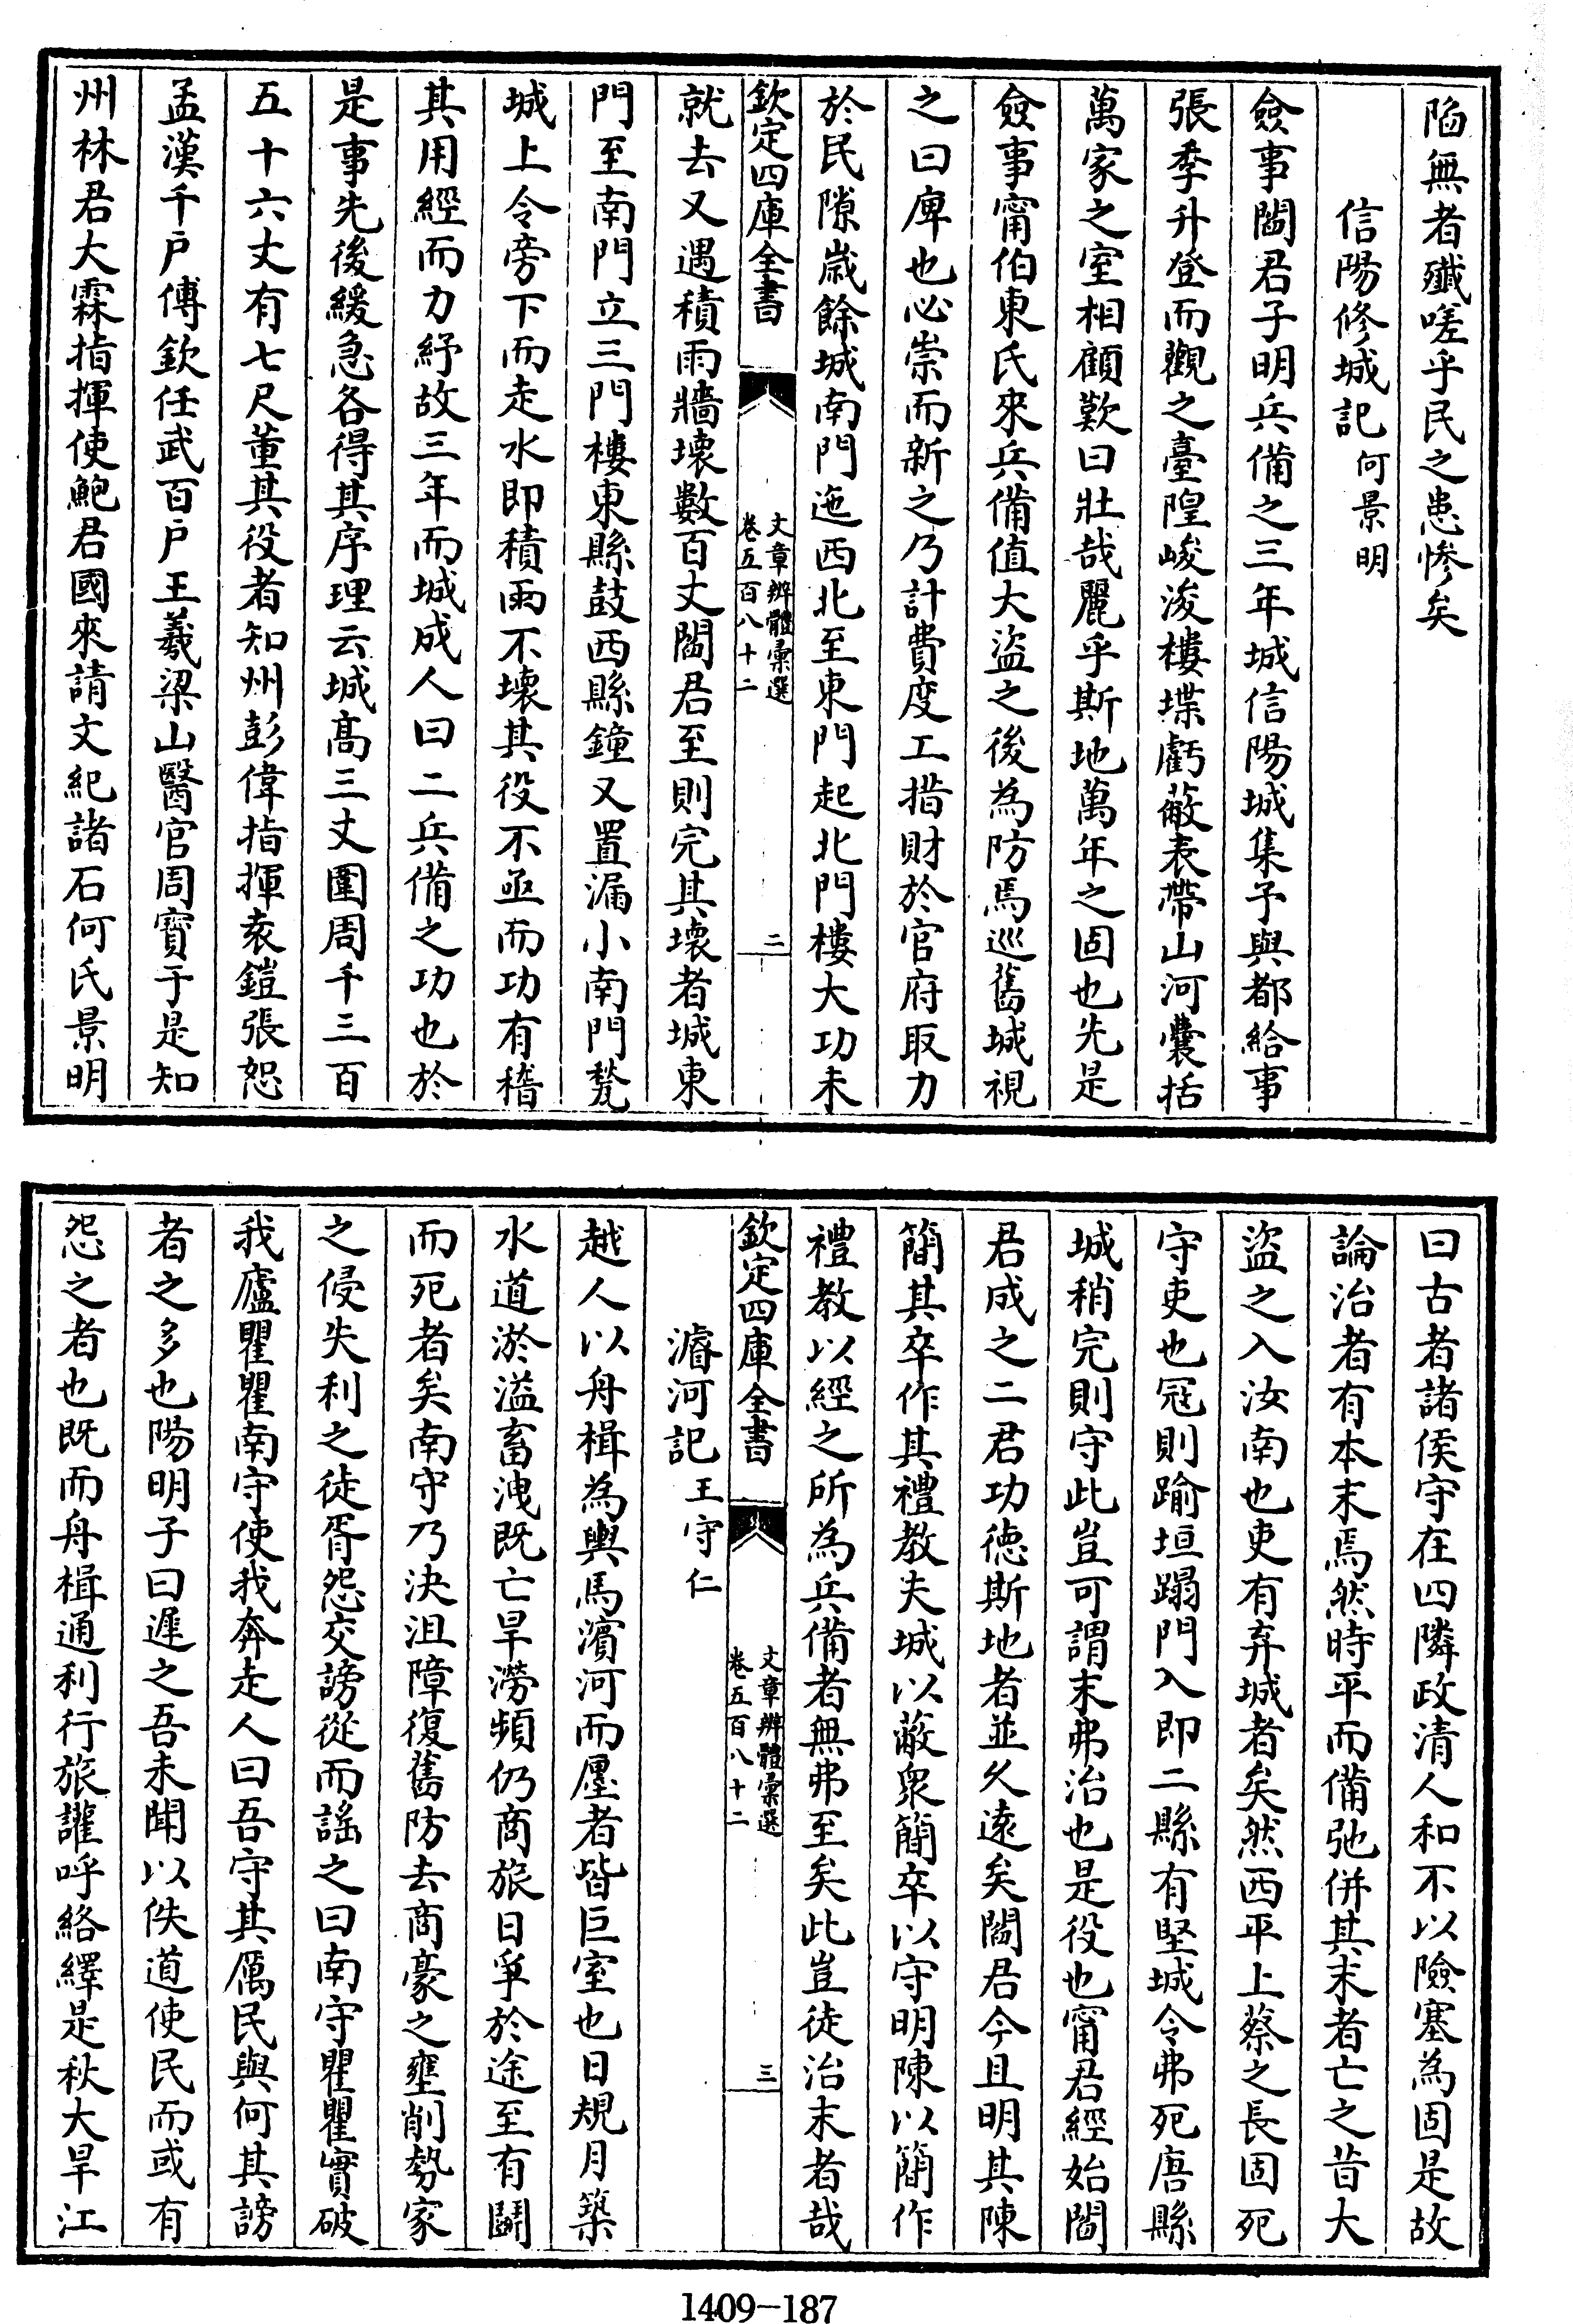 陷無者殲嗟乎民之患慘矣
信陽修城記何景明
僉事閻君子明兵備之三年城信陽城集予與都給事
張季升登而觀之臺隍峻浚樓堞虧蔽表帶山河囊括
萬家之室相顧歎曰壯哉麗乎斯地萬年之固也先是
僉事甯伯東氏來兵備值大盜之後為防焉巡舊城視
之曰庳也必崇而新之乃計費度工措財於官府取力
於民隙歲餘城南門迤西北至東門起北門樓大功未
欽定四庫全書
文章辨體彙選
卷五百八十二
二
就去又遇積雨牆壞數百丈閻君至則完其壞者城東
門至南門立三門樓東縣鼓西縣鐘又置漏小南門甃
城上令旁下而走水即積雨不壞其役不亟而功有稽
其用經而力紓故三年而城成人曰二兵備之功也於
是事先後緩急各得其序理云城髙三丈圍周千三百
五十六丈有七尺董其役者知州彭偉指揮袁鎧張恕
孟漢千戶傅欽任武百戶王羲梁山醫官周寳于是知
州林君大霖指揮使鮑君國來請文紀諸石何氏景明
曰古者諸侯守在四隣政清人和不以險塞為固是故
論治者有本末焉然時平而備弛併其末者亡之昔大
盜之入汝南也吏有弃城者矣然西平上蔡之長固死
守吏也冦則踰垣蹋門入即二縣有堅城令弗死唐縣
城稍完則守此豈可謂末弗治也是役也甯君經始閻
君成之二君功徳斯地者並久遠矣閻君今且明其陳
簡其卒作其禮教夫城以蔽衆簡卒以守明陳以簡作
禮教以經之所為兵備者無弗至矣此豈徒治末者哉
欽定四庫全書
文章辨體彙選
卷五百八十二
三
濬河記王守仁
越人以舟楫為輿馬濵河而廛者皆巨室也日規月築
水道淤溢畜洩既亡旱澇頻仍商旅日爭於途至有鬭
而死者矣南守乃決沮障復舊防去商豪之壅削勢家
之侵失利之徒胥怨交謗從而謡之曰南守瞿瞿實破
我廬瞿瞿南守使我奔走人曰吾守其厲民與何其謗
者之多也陽明子曰遲之吾未聞以佚道使民而或有
怨之者也既而舟楫通利行旅讙呼絡繹是秋大旱江
1409-187